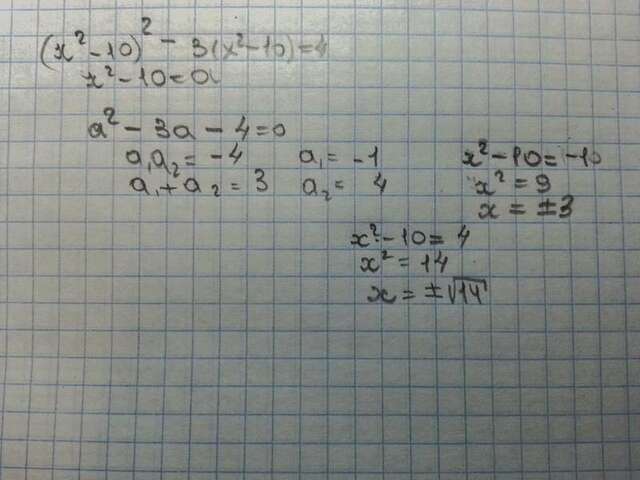 (x² - 10)² - 3(x² - 10) = 4
x² - 10 = a
a² - 3a - 4 = 0
a₁a₂ = -4
a₁ + a₂ = 3
a₁ = -1
a₂ = 4
x² - 10 = -10
x² = 9
x = ±3
x² - 10 = 4
x² = 14
x = ±√14